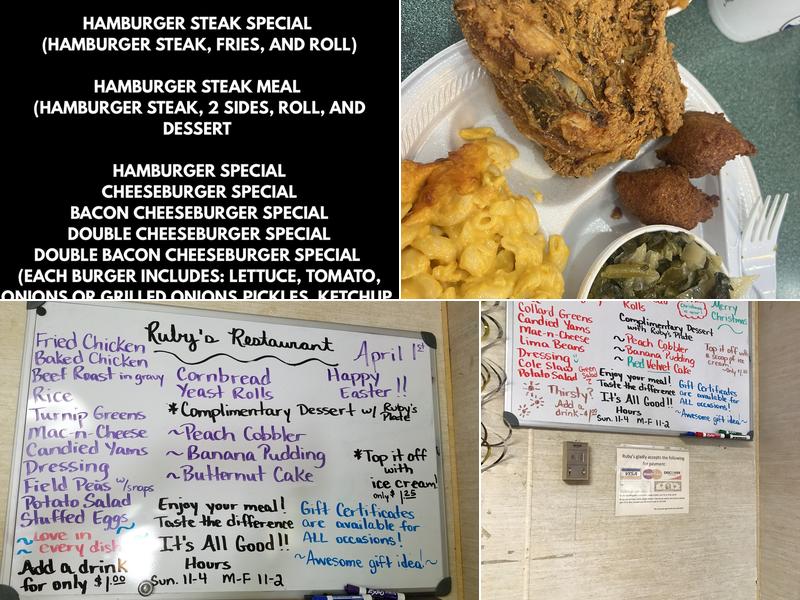 HAMBURGER STEAK SPECIAL
(HAMBURGER STEAK, FRIES, AND ROLL)
HAMBURGER STEAK MEAL
(HAMBURGER STEAK, 2 SIDES, ROLL, AND
DESSERT
HAMBURGER SPECIAL
CHEESEBURGER SPECIAL
BACON CHEESEBURGER SPECIAL
DOUBLE CHEESEBURGER SPECIAL
DOUBLE BACON CHEESEBURGER SPECIAL
(EACH BURGER INCLUDES: LETTUCE, TOMATO,
ONIONS OR GRILLED ONIONS, PICKLES, KETCHUP
Ruby's Restaurant
April 1st
Fried Chicken
Baked Chicken
Beef Roast in gravy
Rice
Turnip Greens
Mac-n-Cheese
Candied Yams
Dressing
Field Peas w/snaps
Potato Salad
Stuffed Eggs
~Love in
every dish~
Add a drink
for only $1.00
Cornbread
Yeast Rolls
Happy
Easter!!
*Complimentary Dessert w/ Ruby's
Plate
~Peach Cobbler
~Banana Pudding
~Butternut Cake
*Top it off
with
ice cream!
only $1.25
Enjoy your meal!
Taste the difference
It's All Good!!
Hours
Sun. 11-4 M-F 11-2
Gift Certificates
are available for
ALL occasions!
~Awesome gift idea!~
Collard Greens
Candied Yams
Mac-n-Cheese
Lima Beans
Dressing
Cole Slaw
Potato Salad
Green
Salad
Thirsty?
Add a
drink-$1.00
Rolls
Merry
Christmas
Complimentary Dessert
with Ruby's Plate
~Peach Cobbler
~Banana Pudding
~Red Velvet Cake
Top it off
with
a scoop of
ice
cream!
Enjoy your meal!
Taste the difference
It's All Good!!
Hours
Sun. 11-4 M-F 11-2
Gift Certificates
are available for
ALL occasions!
~Awesome gift idea~
Ruby's gladly accepts the following
for payment:
VISA
DISCOVER